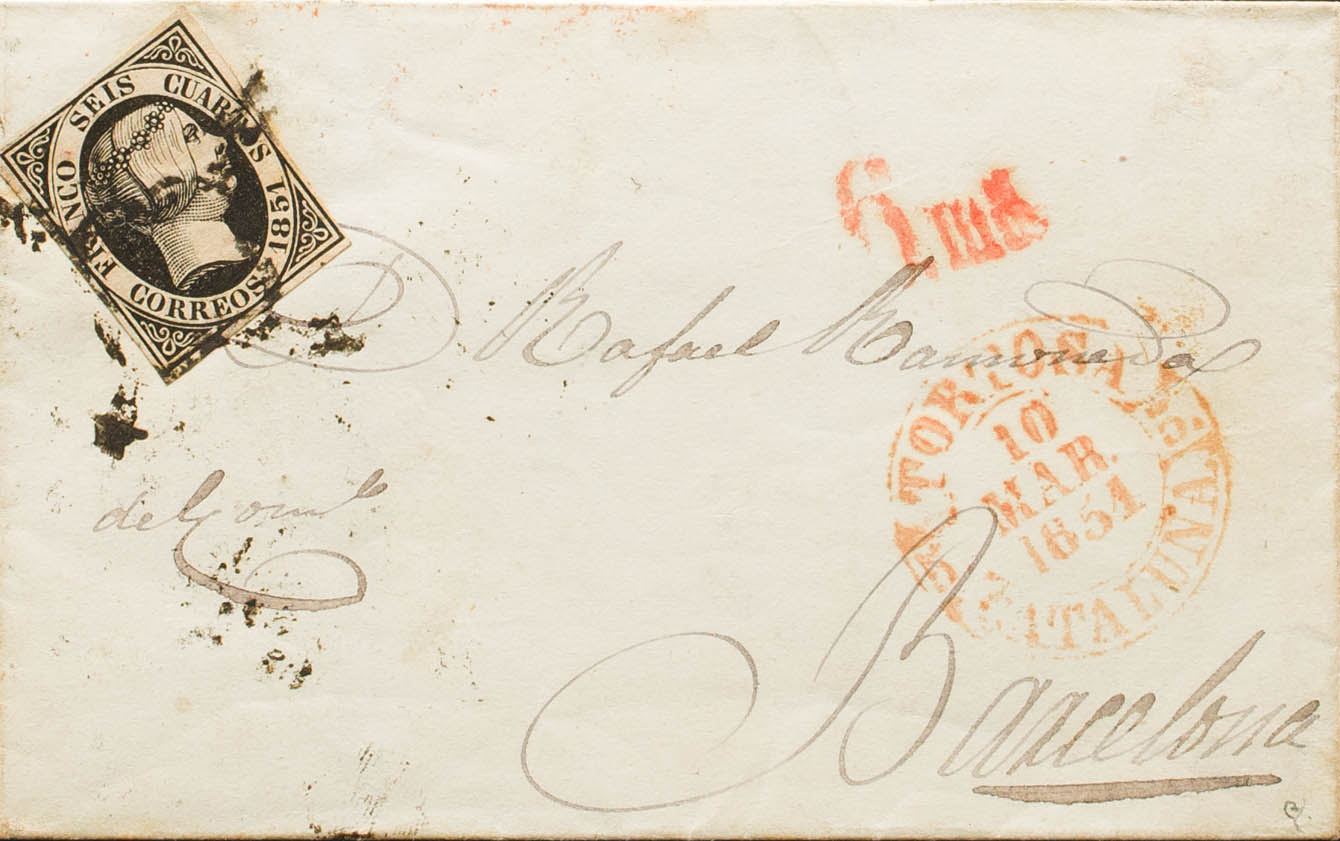 FRANCO SEIS CUARTOS
CORREOS 1851
D. Rafael Ramoneda
TORTOSA
10
MAR.
1851
CATALUÑA
del Comº.
Barcelona